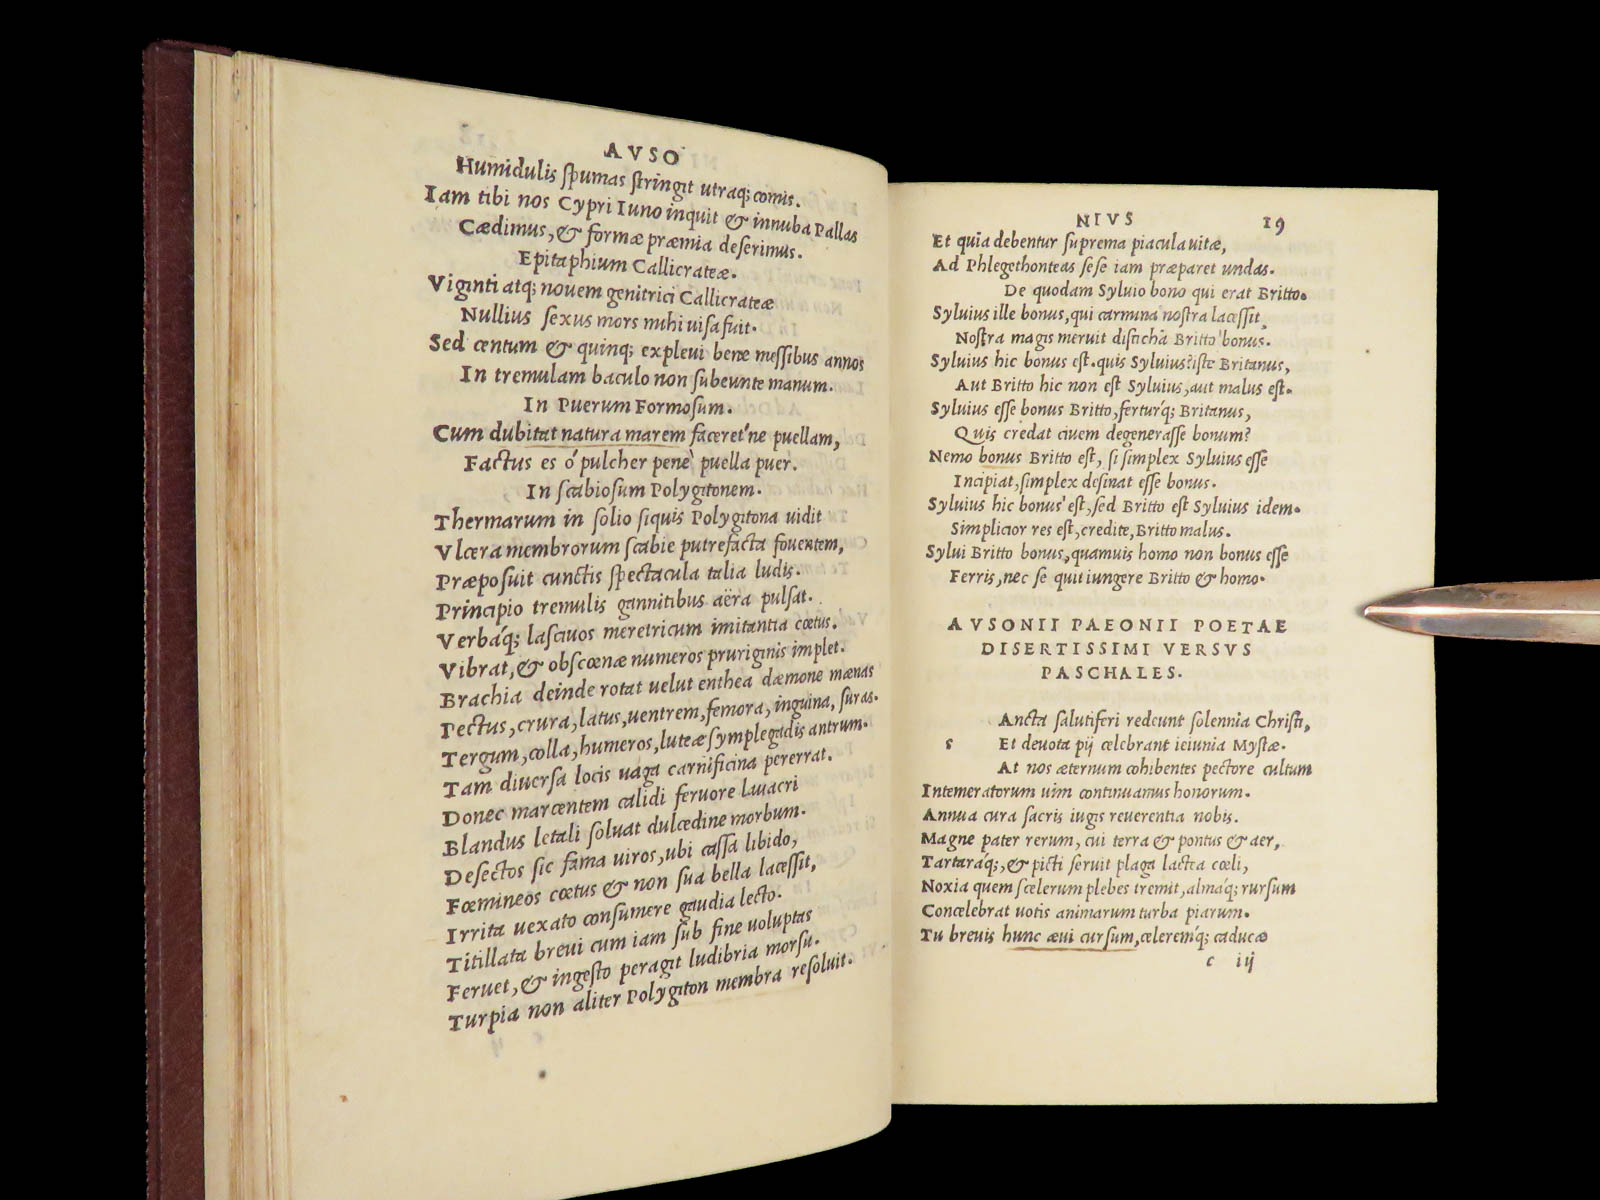 AVSO
Humidulis ſpumas ſtringit utraq; comis.
Iam tibi nos Cypri Iuno inquit & innuba Pallas
Cædimus, & formæ præmia deſerimus.
Epitaphium Callicrateæ.
Viginti atq; nouem genitrici Callicrateæ
Nullius ſexus mors mihi uiſa fuit.
Sed centum & quinq; expleui bene meſſibus annos
In tremulam baculo non ſubeunte manum.
In Puerum Formoſum.
Cum dubitat natura marem faceret'ne puellam,
Factus es ó pulcher penè puella puer.
In ſcabioſum Polygitonem.
Thermarum in ſolio ſiquis Polygitona uidit
Vlcera membrorum ſcabie putrefacta fouentem,
Præpoſuit cunctis ſpectacula talia ludis.
Principio tremulis gannitibus aëra pulſat.
Verbáq; laſciuos meretricum imitantia cœtus.
Vibrat, & obſcœnæ numeros pruriginis implet.
Brachia deinde rotat uelut enthea dæmone mænas
Pectus, crura, latus, uentrem, femora, inguina, ſuras.
Tergum, colla, humeros, luteæ ſymplegadis antrum.
Tam diuerſa locis uaga carnificina pererrat.
Donec marcentem calidi feruore lauacri
Blandus letali ſoluat dulcedine morbum.
Deſectos ſic fama uiros, ubi caſſa libido,
Fœmineos cœtus & non ſua bella laceſſit,
Irrita uexato conſumere gaudia lecto.
Titillata breui cum iam ſub fine uoluptas
Feruet, & ingeſto peragit ludibria morſu.
Turpia non aliter Polygiton membra reſoluit.
NIVS 19
Et quia debentur ſuprema piacula uitæ,
Ad Phlegethonteas ſeſe iam præparet undas.
De quodam Syluio bono qui erat Britto.
Syluius ille bonus, qui carmina noſtra laceſſit,
Noſtra magis meruit diſticha Britto bonus.
Syluius hic bonus eſt. quis Syluius? iſte Britanus,
Aut Britto hic non eſt Syluius, aut malus eſt.
Syluius eſſe bonus Britto, fertúrq; Britanus,
Quis credat ciuem degeneraſſe bonum?
Nemo bonus Britto eſt, ſi ſimplex Syluius eſſe
Incipiat, ſimplex deſinat eſſe bonus.
Syluius hic bonus eſt, ſed Britto eſt Syluius idem.
Simplicior res eſt, credite, Britto malus.
Sylui Britto bonus, quamuis homo non bonus eſſe
Ferris, nec ſe quit iungere Britto & homo.
AVSONII PAEONII POETAE
DISERTISSIMI VERSVS
PASCHALES.
Ancta ſalutiferi redeunt ſolennia Chriſti,
s Et deuota pij celebrant ieiunia Myſtæ.
At nos æternum cohibentes pectore cultum
Intemeratorum uim continuamus honorum.
Annua cura ſacris iugis reuerentia nobis.
Magne pater rerum, cui terra & pontus & aer,
Tartaráq;, & picti ſeruit plaga lactea cœli,
Noxia quem ſcelerum plebes tremit, almáq; rurſum
Concelebrat uotis animarum turba piarum.
Tu breuis hunc æui curſum, celerémq; caducæ
c iij